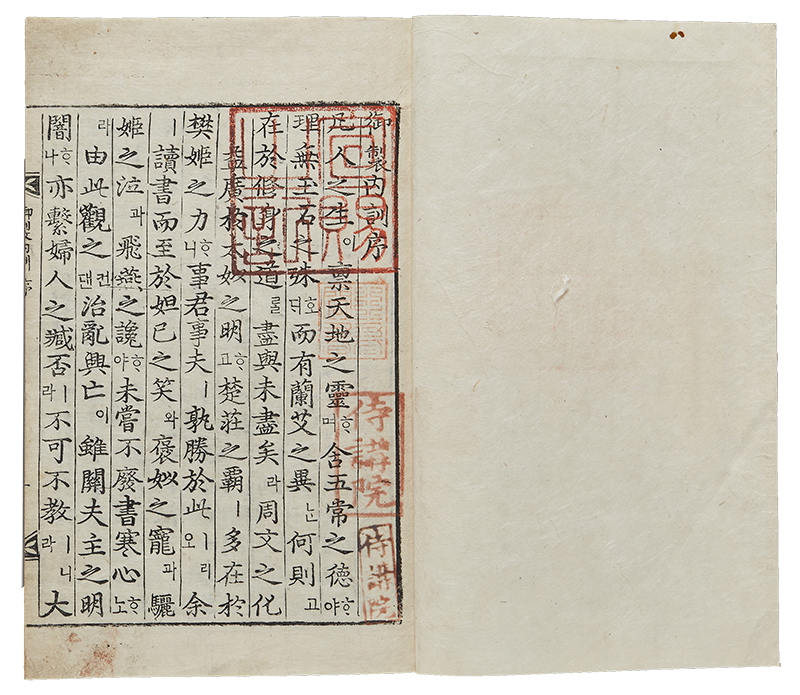 御製內訓序
凡人之生이稟天地之靈ᄒᆞ며含五常之德ᄒᆞ야
理無玉石之殊호ᄃᆡ而有蘭艾之異ᄂᆞᆫ何則고
在於修身之道ᄅᆞᆯ盡與未盡矣라周文之化
益廣於太姒之明ᄒᆞ고楚莊之霸ㅣ多在於
樊姬之力ᄒᆞ니事君事夫ㅣ孰勝於此ㅣ리오余
ㅣ讀書而至於妲己之笑와褒姒之寵과驪
姬之泣과飛燕之讒ᄒᆞ야未嘗不廢書寒心ᄒᆞ노
라由此觀之컨댄治亂興亡이雖關夫主之明
闇ᄒᆞ나亦繫婦人之臧否ㅣ라不可不教ㅣ니라大
侍講院
侍講院